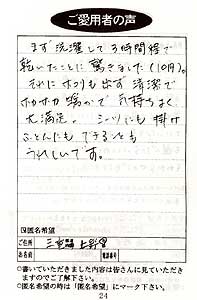 ご愛用者の声
まず洗濯して3時間程で
乾いたことに驚きました(10月)。
それにホコリも出ず清潔で
ホカホカ暖かで気持ちよく
大満足。シーツにも掛け
ふとんにもできることも
うれしいです。
匿名希望
ご住所 三重県上野市
お名前 電話番号
○書いていただきました内容は皆さんに見ていただき
ますのでご了解下さい。
○匿名希望の時は「匿名希望」にマーク下さい。
24